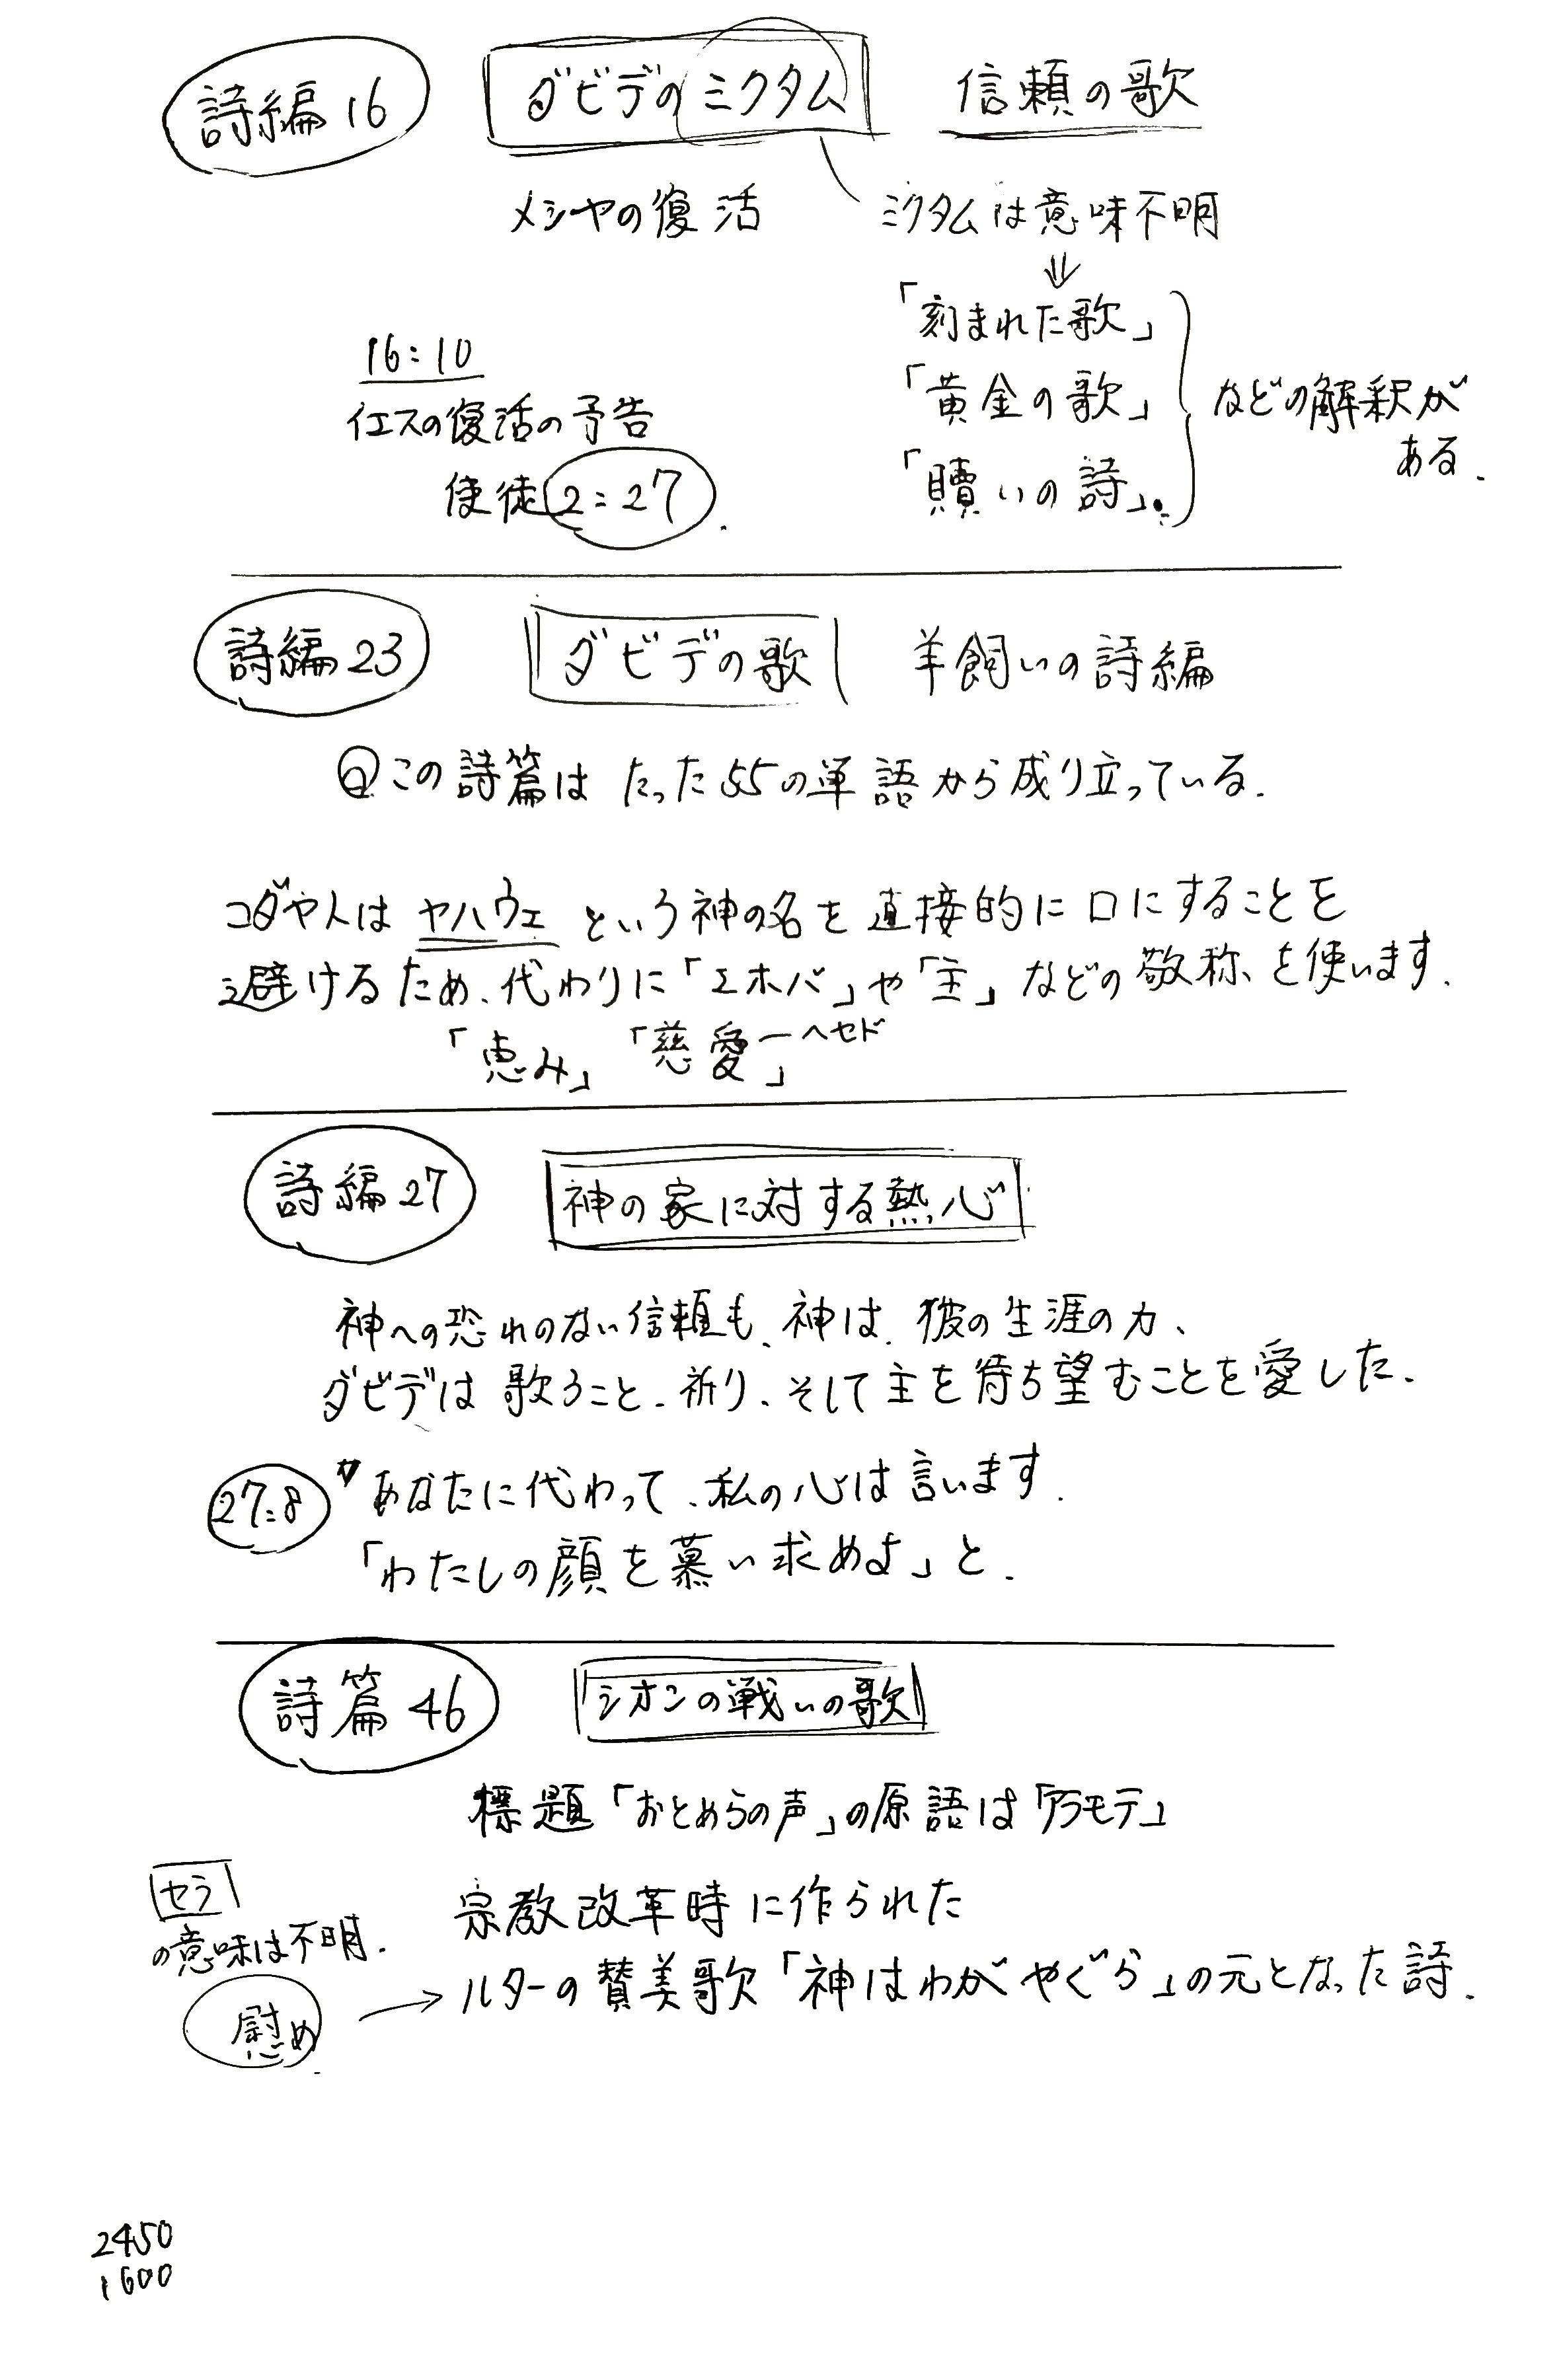 詩編16 ダビデのミクタム 信頼の歌
メシヤの復活 ミクタムは意味不明
⇓
「刻まれた歌」
16:10
「黄金の歌」 などの解釈が
ある.
イエスの復活の予告
使徒2:27.
「贖いの詩」.
詩編23 ダビデの歌 羊飼いの詩編
この詩篇はたった55の単語から成り立っている.
コダヤ人はヤハウェという神の名を直接的に口にすることを
避けるため、代わりに「エホバ」や「主」などの敬称を使います.
「恵み」「慈愛」ーヘセド
詩編27 神の家に対する熱心
神への恐れのない信頼も、神は、彼の生涯の力、
ダビデは歌うこと、祈り、そして主を待ち望むことを愛した.
27:8 〃あなたに代わって、私の心は言います.
「わたしの顔を慕い求めよ」と.
詩篇46 シオンの戦いの歌
標題「おとめらの声」の原語は「アラモテ」
セラ
の意味は不明.
慰め.
宗教改革時に作られた
→ルターの賛美歌「神はわがやぐら」の元となった詩.
2450
1600